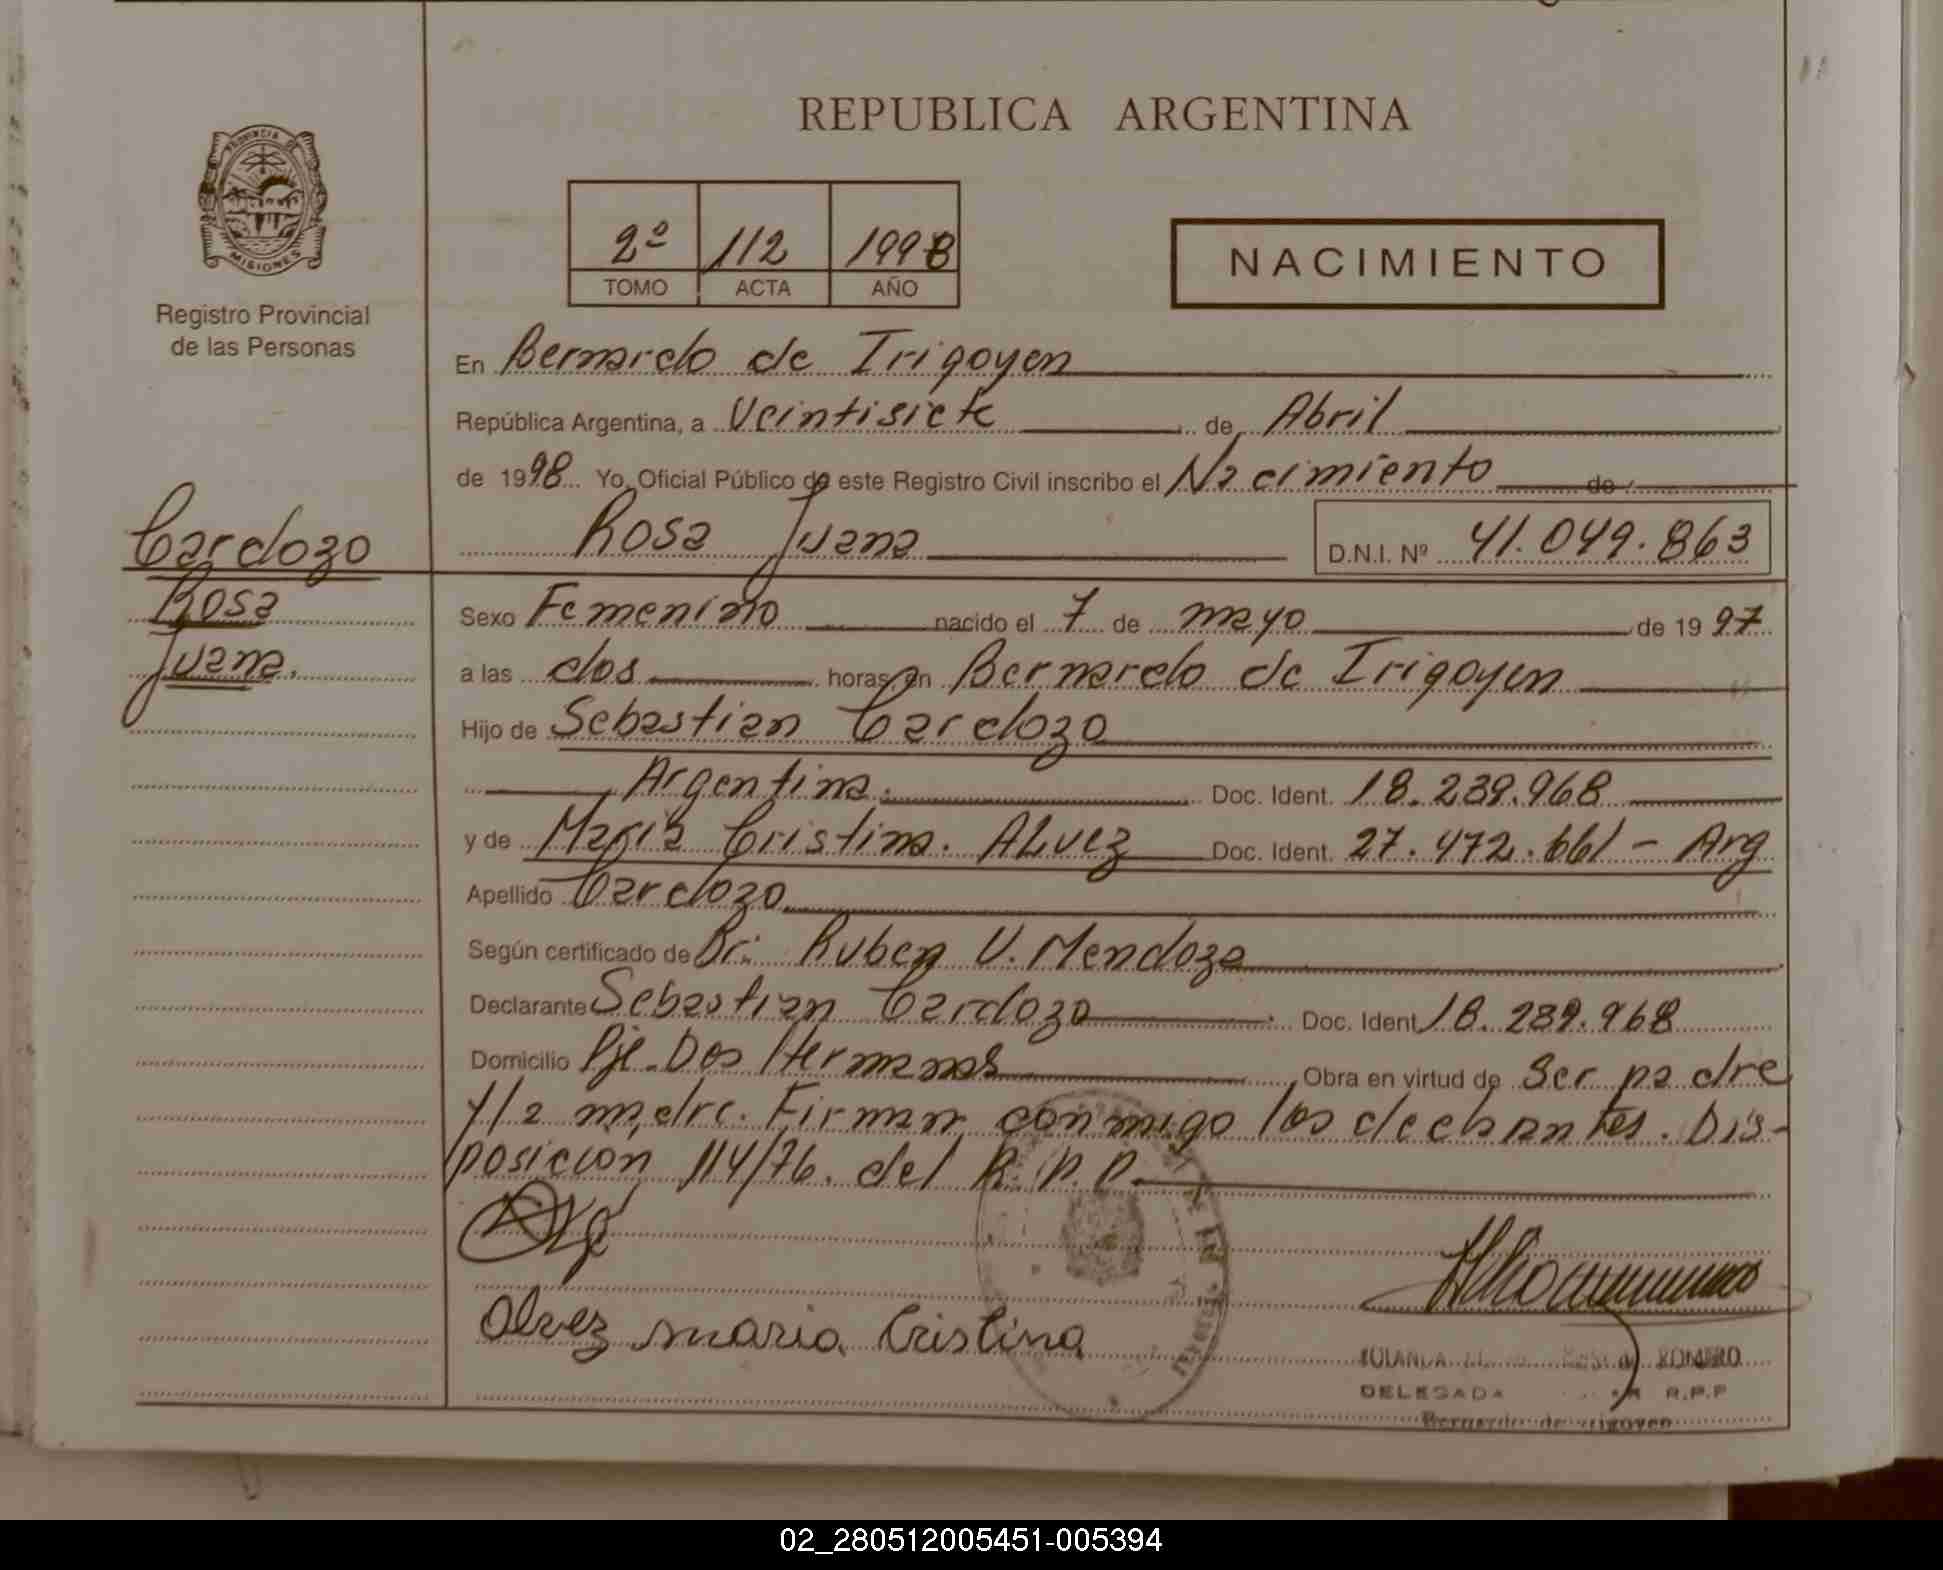 REPUBLICA ARGENTINA
PROVINCIA DE
MISIONES
Registro Provincial
de las Personas
2º 112 1998
TOMO ACTA AÑO
NACIMIENTO
En Bernardo de Irigoyen
República Argentina, a Veintisiete de Abril
de 1998 Yo, Oficial Público de este Registro Civil inscribo el Nacimiento de
Rosa Juana D.N.I. Nº 41.049.863
Cardozo
Rosa
Juana.
Sexo Femenino nacido el 7 de mayo de 1997
a las dos horas en Bernardo de Irigoyen
Hijo de Sebastian Cardozo
Argentina. Doc. Ident. 18.239.968
y de Maria Cristina. ALvez Doc. Ident. 27.472.661 - Arg
Apellido Cardozo
Según certificado de Dr: Ruben V. Mendoza
Declarante Sebastian Cardozo Doc. Ident. 18.239.968
Domicilio Pje. Dos Hermanas Obra en virtud de Ser padre
y la madre. Firman conmigo los declarantes. Dis-
posición 114/76. del R.P.P.
Alvez maria Cristina
ROMERO
DELEGADA R.P.P
Bernardo de Irigoyen
02_280512005451-005394